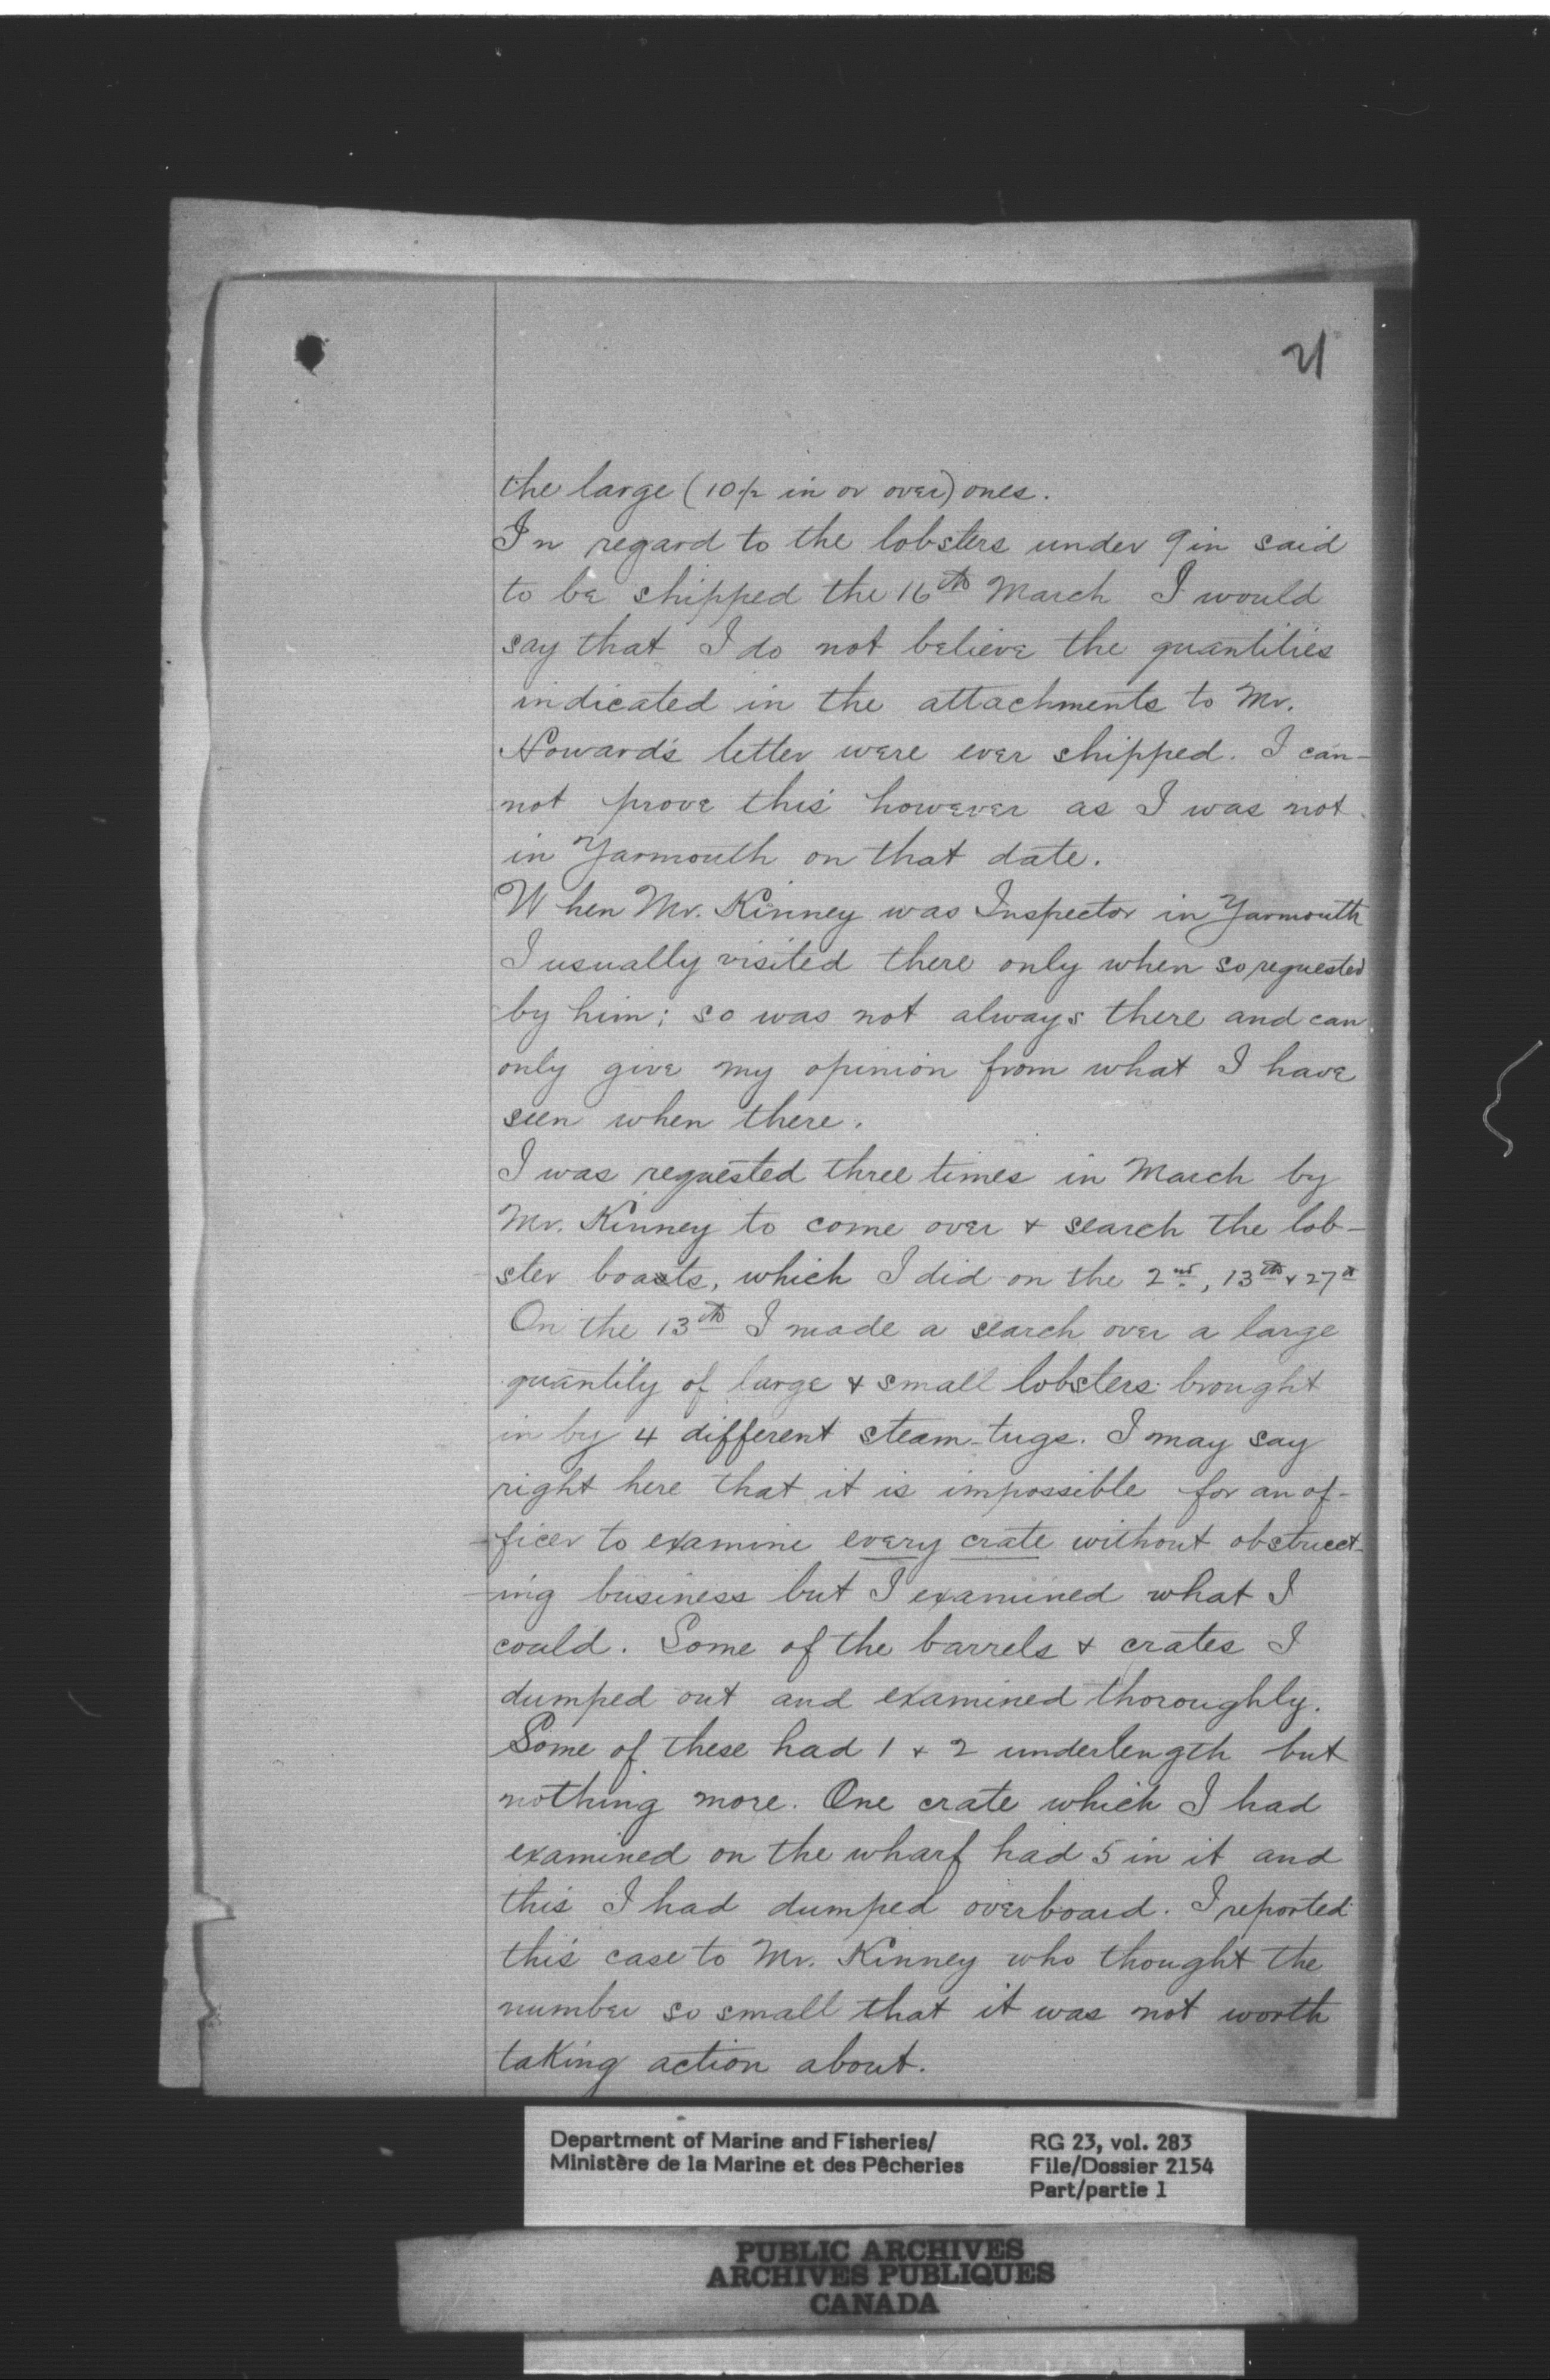 21
the large (10 1/2 in or over) ones.
In regard to the lobsters under 9 in said
to be shipped the 16th March I would
say that I do not believe the quantities
indicated in the attachments to Mr.
Howard's letter were ever shipped. I can-
not prove this however as I was not
in Yarmouth on that date.
When Mr. Kinney was Inspector in Yarmouth
I usually visited there only when so requested
by him; so was not always there and can
only give my opinion from what I have
seen when there.
I was requested three times in March by
Mr. Kinney to come over & search the lob-
ster boats, which I did on the 2nd, 13th & 27th
On the 13th I made a search over a large
quantity of large & small lobsters brought
in by 4 different steam-tugs. I may say
right here that it is impossible for an of-
-ficer to examine every crate without obstruct-
-ing business but I examined what I
could. Some of the barrels & crates I
dumped out and examined thoroughly.
Some of these had 1 & 2 underlength but
nothing more. One crate which I had
examined on the wharf had 5 in it and
this I had dumped overboard. I reported
this case to Mr. Kinney who thought the
number so small that it was not worth
taking action about.
Department of Marine and Fisheries/
Ministère de la Marine et des Pêcheries
RG 23, vol. 283
File/Dossier 2154
Part/partie 1
PUBLIC ARCHIVES
ARCHIVES PUBLIQUES
CANADA